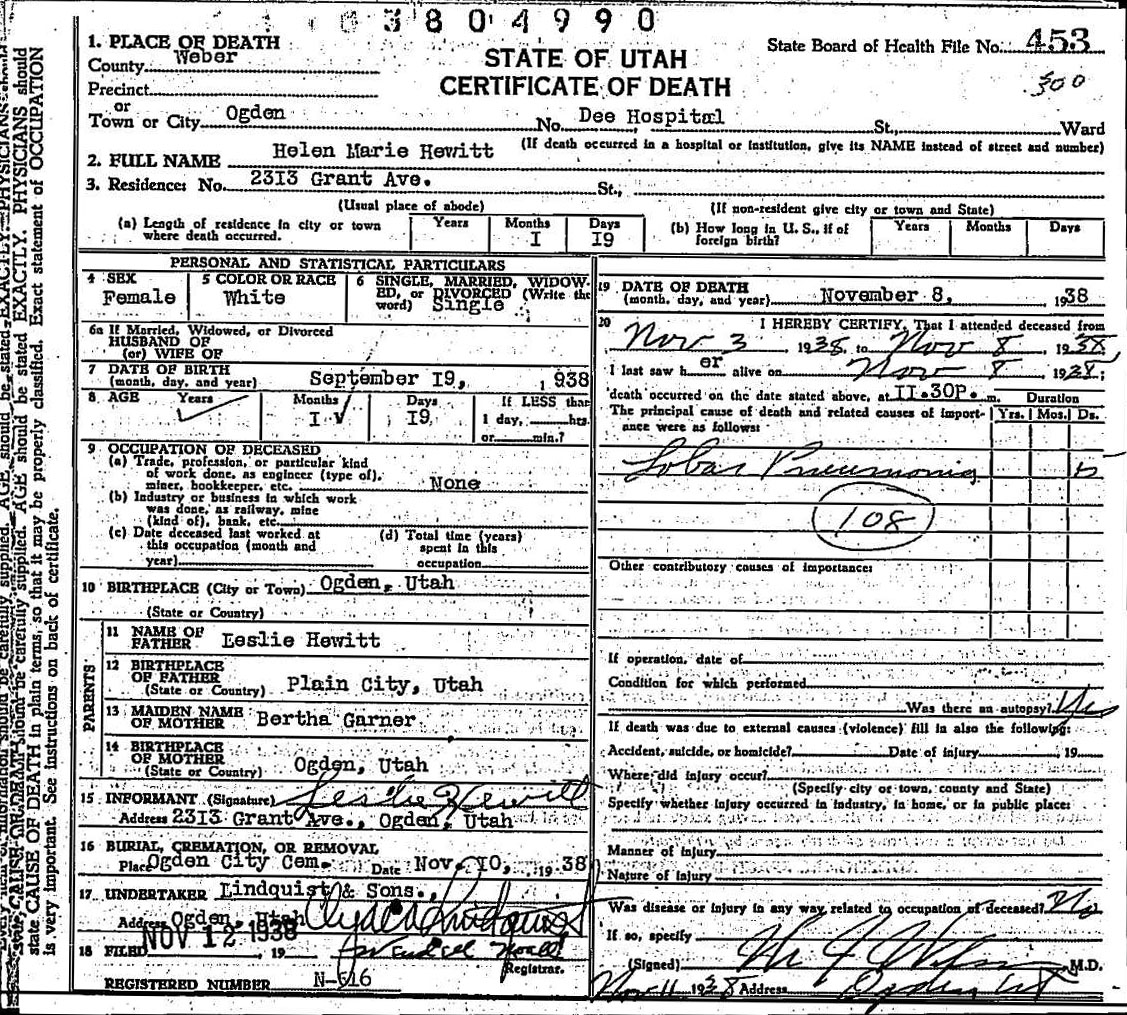 3804990
1. PLACE OF DEATH
County Weber
Precinct
or
Town or City Ogden No. Dee Hospital St., Ward
STATE OF UTAH
CERTIFICATE OF DEATH
State Board of Health File No. 453
300
(If death occurred in a hospital or institution, give its NAME instead of street and number)
2. FULL NAME Helen Marie Hewitt
3. Residence: No. 2313 Grant Ave. St.,
(Usual place of abode) (If non-resident give city or town and State)
(a) Length of residence in city or town where death occurred. Years Months I Days I9
(b) How long in U. S., if of foreign birth? Years Months Days
PERSONAL AND STATISTICAL PARTICULARS
4 SEX Female
5 COLOR OR RACE White
6 SINGLE, MARRIED, WIDOWED, or DIVORCED (Write the word) Single
6a If Married, Widowed, or Divorced
HUSBAND OF
(or) WIFE OF
7 DATE OF BIRTH
(month, day, and year) September I9, 1938
8 AGE Years Months I Days I9 If LESS than
1 day, hrs.
or min.?
9 OCCUPATION OF DECEASED
(a) Trade, profession, or particular kind
of work done, as engineer (type of),
miner, bookkeeper, etc. None
(b) Industry or business in which work
was done, as railway, mine
(kind of), bank, etc.
(c) Date deceased last worked at
this occupation (month and
year)
(d) Total time (years)
spent in this
occupation
10 BIRTHPLACE (City or Town) Ogden, Utah
(State or Country)
PARENTS
11 NAME OF
FATHER Leslie Hewitt
12 BIRTHPLACE
OF FATHER
(State or Country) Plain City, Utah
13 MAIDEN NAME
OF MOTHER Bertha Garner
14 BIRTHPLACE
OF MOTHER
(State or Country) Ogden, Utah
15 INFORMANT (Signature) Leslie Hewitt
Address 2313 Grant Ave., Ogden, Utah
16 BURIAL, CREMATION, OR REMOVAL
Place Ogden City Cem. Date Nov. I0, 1938
17 UNDERTAKER Lindquist & Sons.,
Address Ogden, Utah
18 FILED NOV 12 1938, 19
Registrar.
REGISTERED NUMBER N-516
19 DATE OF DEATH
(month, day, and year) November 8, 1938
20 I HEREBY CERTIFY, That I attended deceased from
Nov 3 1938, to Nov 8, 1938,
I last saw her alive on Nov 8 1938;
death occurred on the date stated above, at II.30P. m. Duration
The principal cause of death and related causes of importance were as follows: Yrs. Mos. Ds.
Lobar Pneumonia 5
108
Other contributory causes of importance:
If operation, date of
Condition for which performed
Was there an autopsy? Yes
If death was due to external causes (violence) fill in also the following:
Accident, suicide, or homicide? Date of injury 19
Where did injury occur?
(Specify city or town, county and State)
Specify whether injury occurred in industry, in home, or in public place:
Manner of injury
Nature of injury
Was disease or injury in any way related to occupation of deceased? No
If so, specify
(Signed) M.D.
Nov 11 1938 Address Ogden Ut
state CAUSE OF DEATH in plain terms, so that it may be properly classified. Exact statement of OCCUPATION
is very important. See instructions on back of certificate.